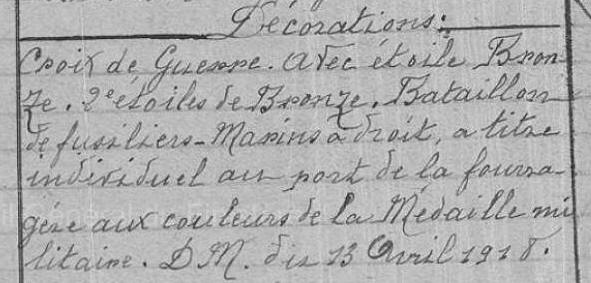 Décorations:
Croix de Guerre. Avec étoile Bron
ze. 2e étoiles de Bronze. Bataillon
de fusiliers-Marins a droit, a titre
individuel au port de la fourra-
gère aux couleurs de la Médaille mi
litaire. D M. du 13 Avril 1918.